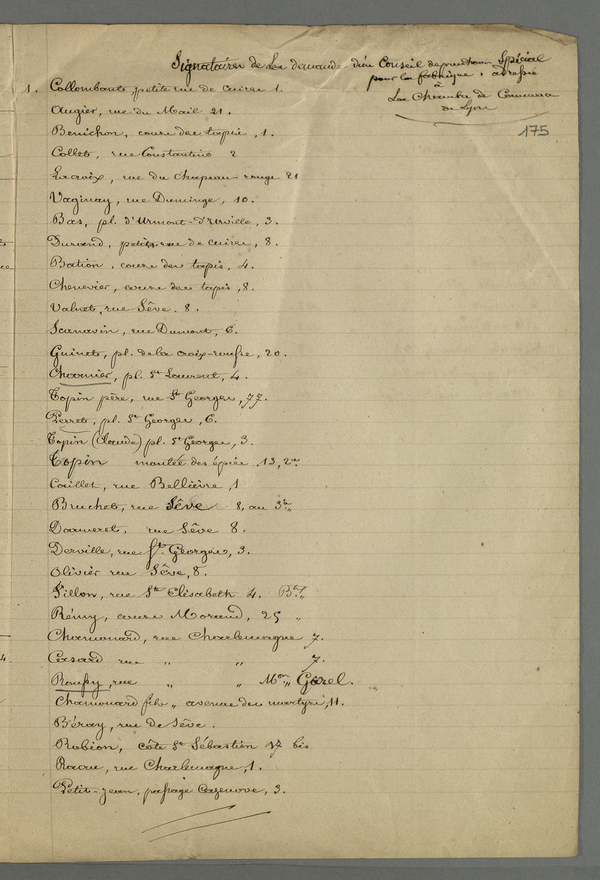 Signataires de la demande d'un Conseil de prudhomes Spécial
pour la fabrique, adressée
à
La Chambre de Commerce
de Lyon
175
1. Collombant, petite rue de Cuire 1.
Augier, rue du Mail 21.
Benichon, cours des tapis, 1.
Collet, rue Constantine 2
Lacroix, rue du Chapeau-rouge 21
Vaginay, rue Duminge, 10.
Bas, pl. d'Urmont-d'Urville, 3.
Durand, petite rue de cuire, 8.
Bation, cours des tapis, 4.
Chenevier, cours des tapis, 8.
Valuet, rue Sêve. 8.
Scanavin, rue Dumont, 6.
Guinet, pl. de la croix-rousse, 20.
Charnier, pl. St Laurent, 4.
Topin père, rue St Georges, 77.
Perret, pl. St Georges, 6.
Topin (Claude) pl. St Georges, 3.
Topin montée des épies 13, 2e
Caillet, rue Bellièvre, 1
Bruchet, rue Sêve 8, au 3e
Darmeret, rue Sêve 8.
Derville, rue St Georges, 3.
Olivier rue Sêve, 8.
Fillon, rue Ste Elisabeth 4.
Rémy, cours Morand, 25 "
Chamouard, rue Charlemagne 7.
Casard rue " " 7.
Roussy, rue " " Mon " Gorel.
Chamouard fils " avenue des martyrs, 11.
Béray, rue de Sêve.
Robion, côte St Sébastien 17 bis
Racru, rue Charlemagne, 1.
Petit-jean, passage Cazenove, 3.